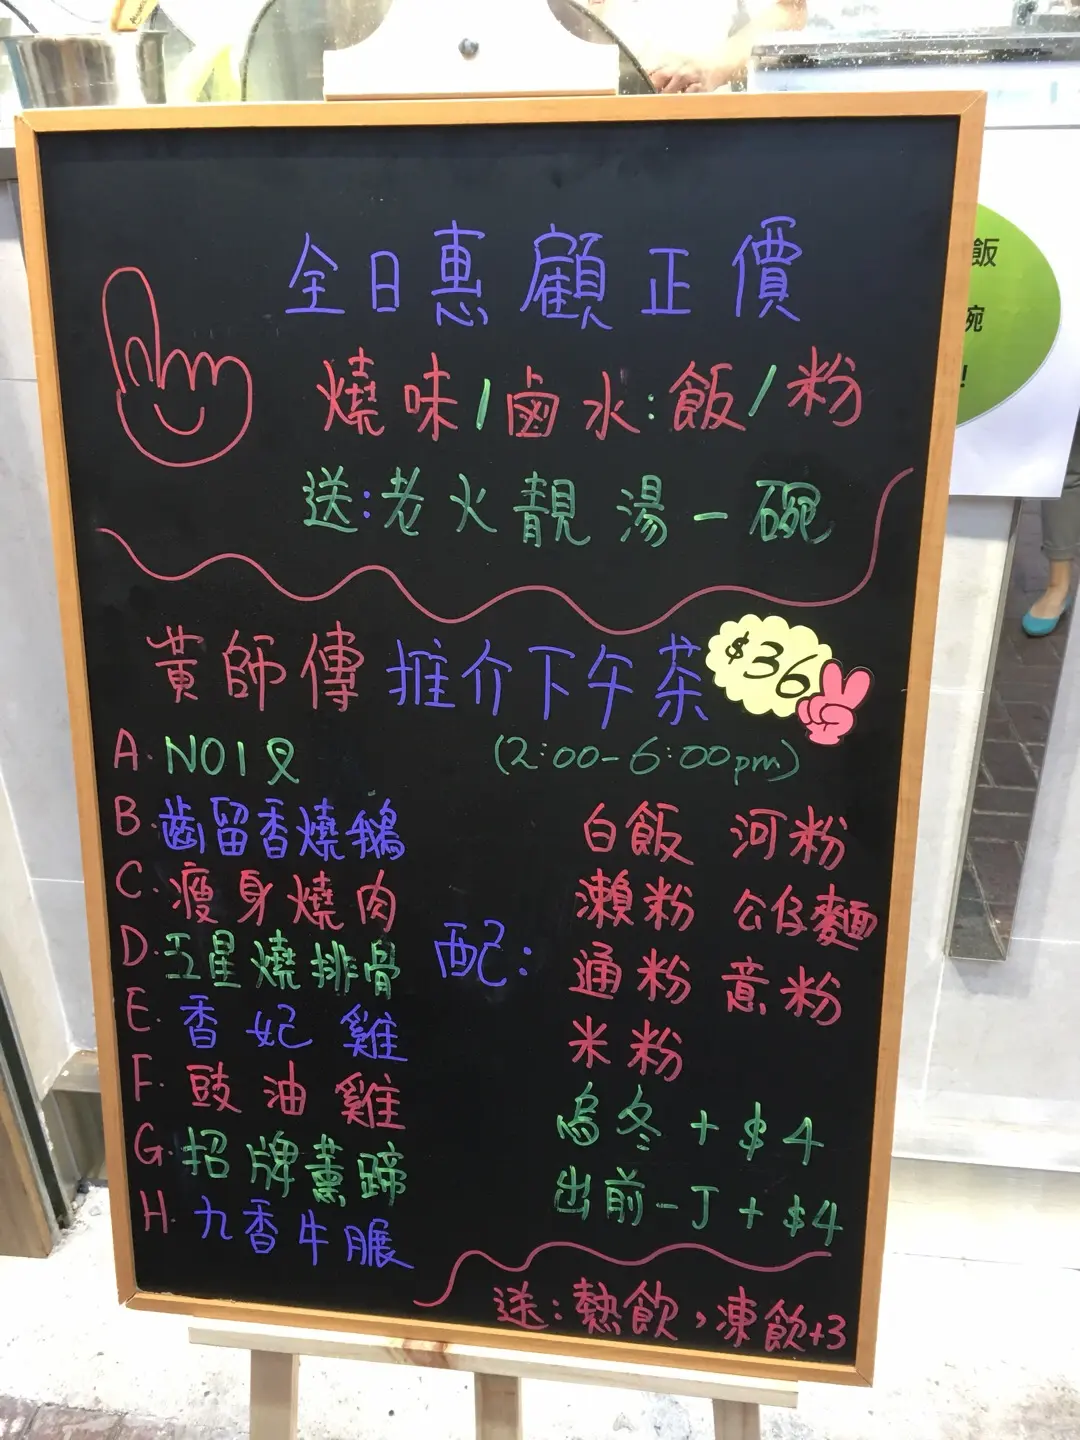 全日惠顧正價
燒味/鹵水:飯/粉
送:老火靚湯一碗
黃師傅推介下午茶 $36
(2:00-6:00pm)
A. NO1叉
B. 齒留香燒鵝
C. 瘦身燒肉
D. 五星燒排骨
E. 香妃雞
F. 豉油雞
G. 招牌薰蹄
H. 九香牛𦟌
配:
白飯 河粉
瀨粉 公仔麵
通粉 意粉
米粉
烏冬+$4
出前一丁+$4
送:熱飲,凍飲+3
飯
碗
!